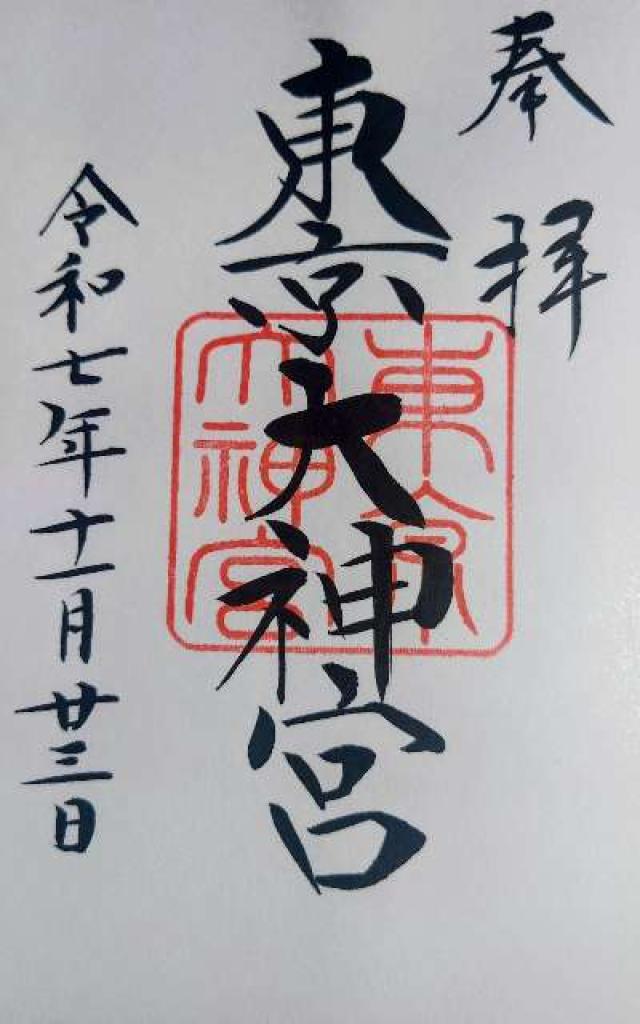 奉拝
東京大神宮
東京大神宮
令和七年十一月廿三日